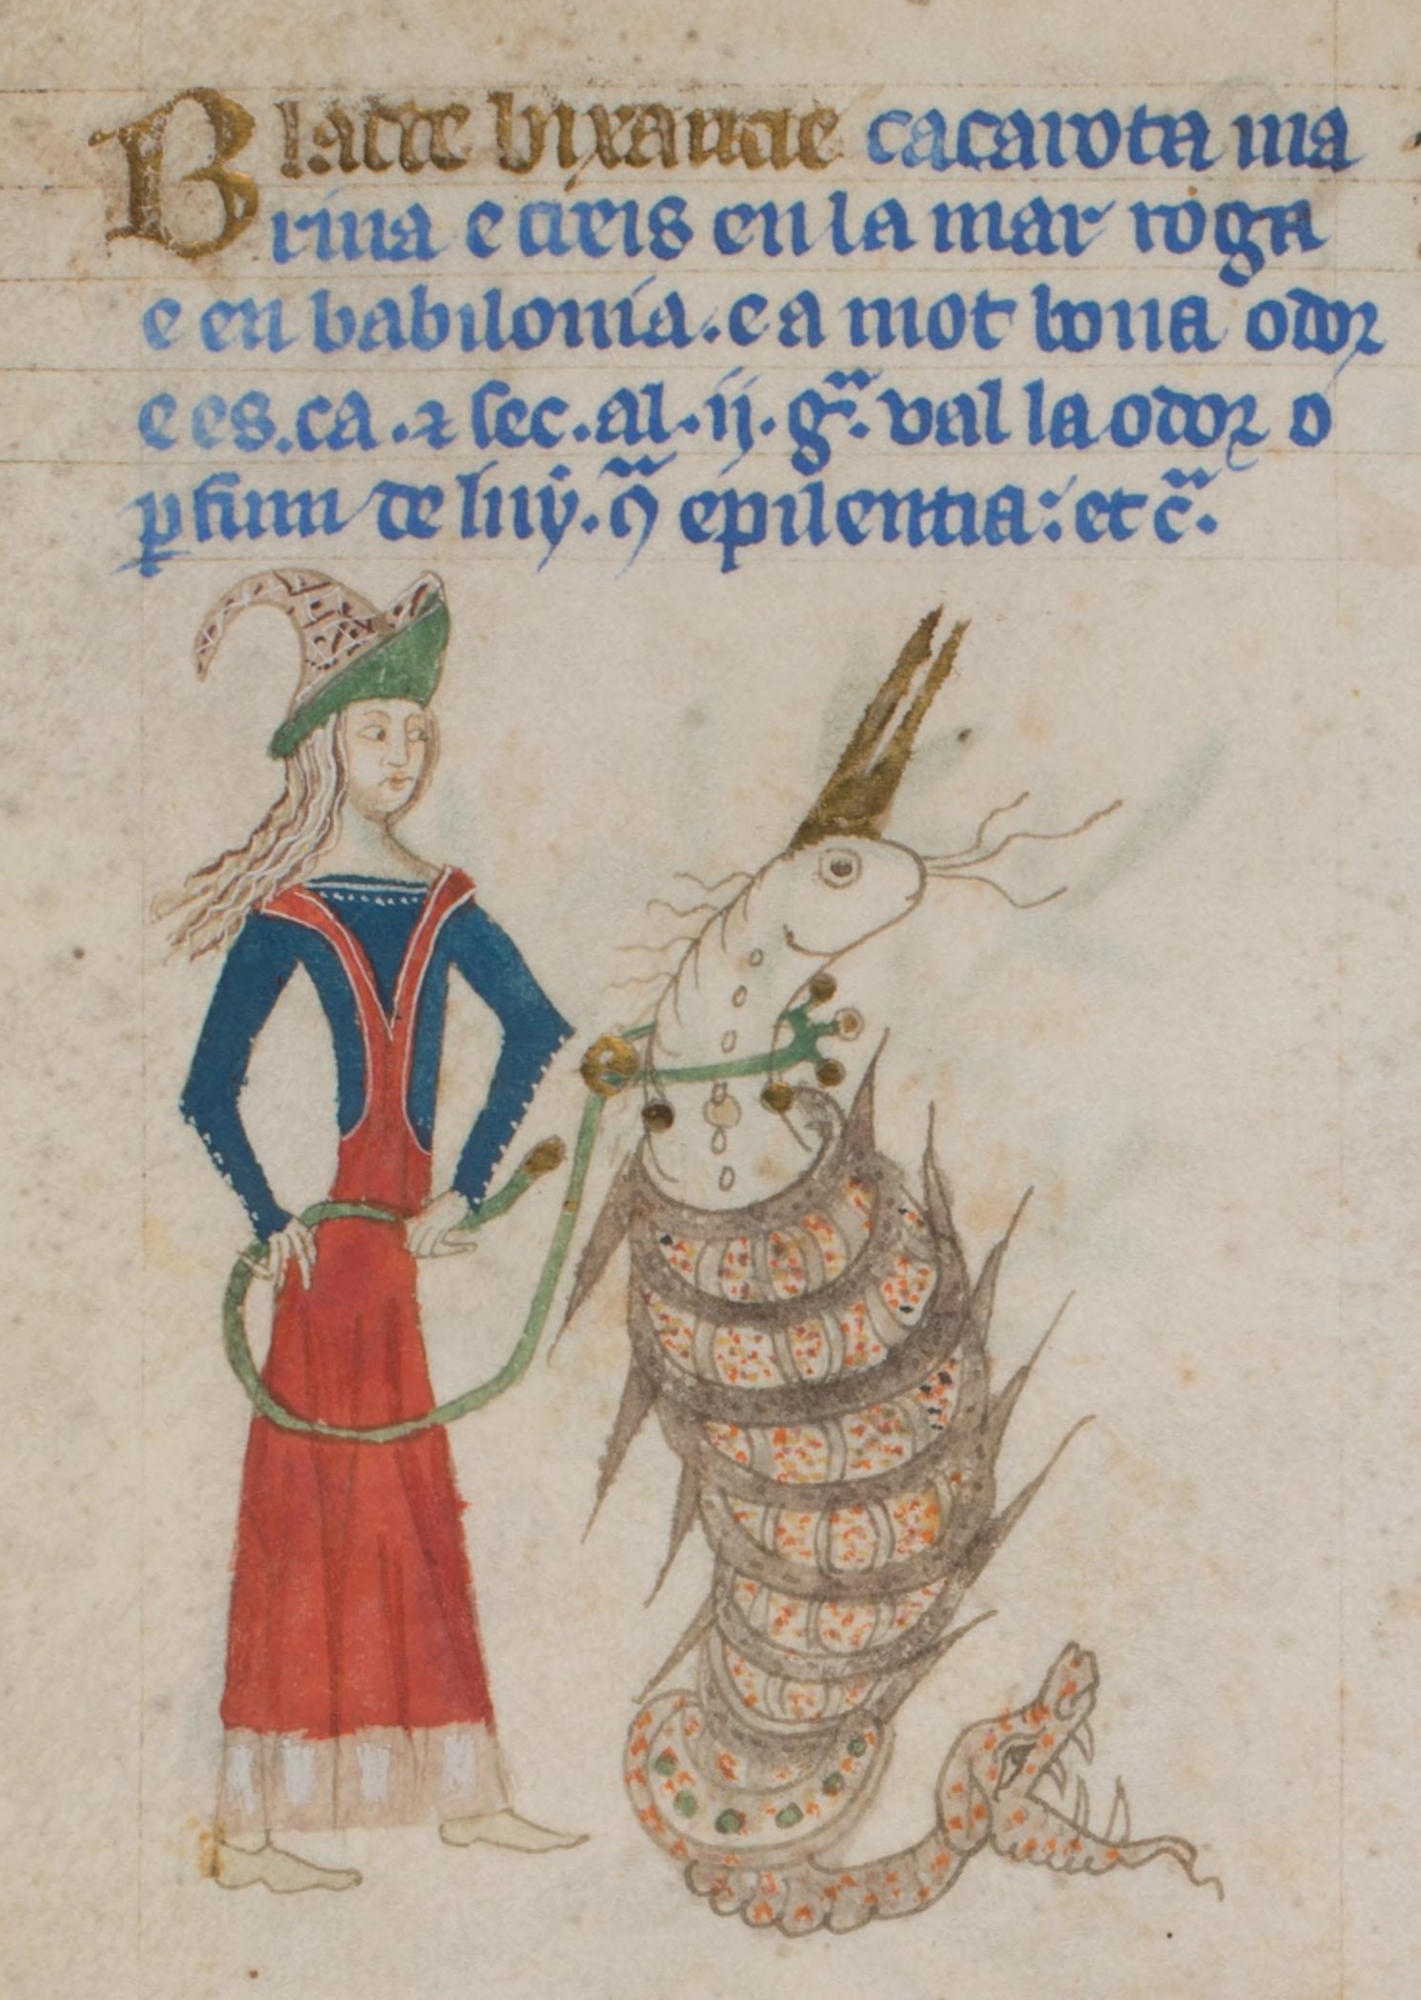 Blacte bixancie cacarota ma
rina e creis en la mar roga
e en babilonia. e a mot bona odor
e es. ca. ⁊ sec. al. ij. gᵃ. val la odor o
ꝑfum de luy. ꝯᵃ epilentia: et cᵃ.